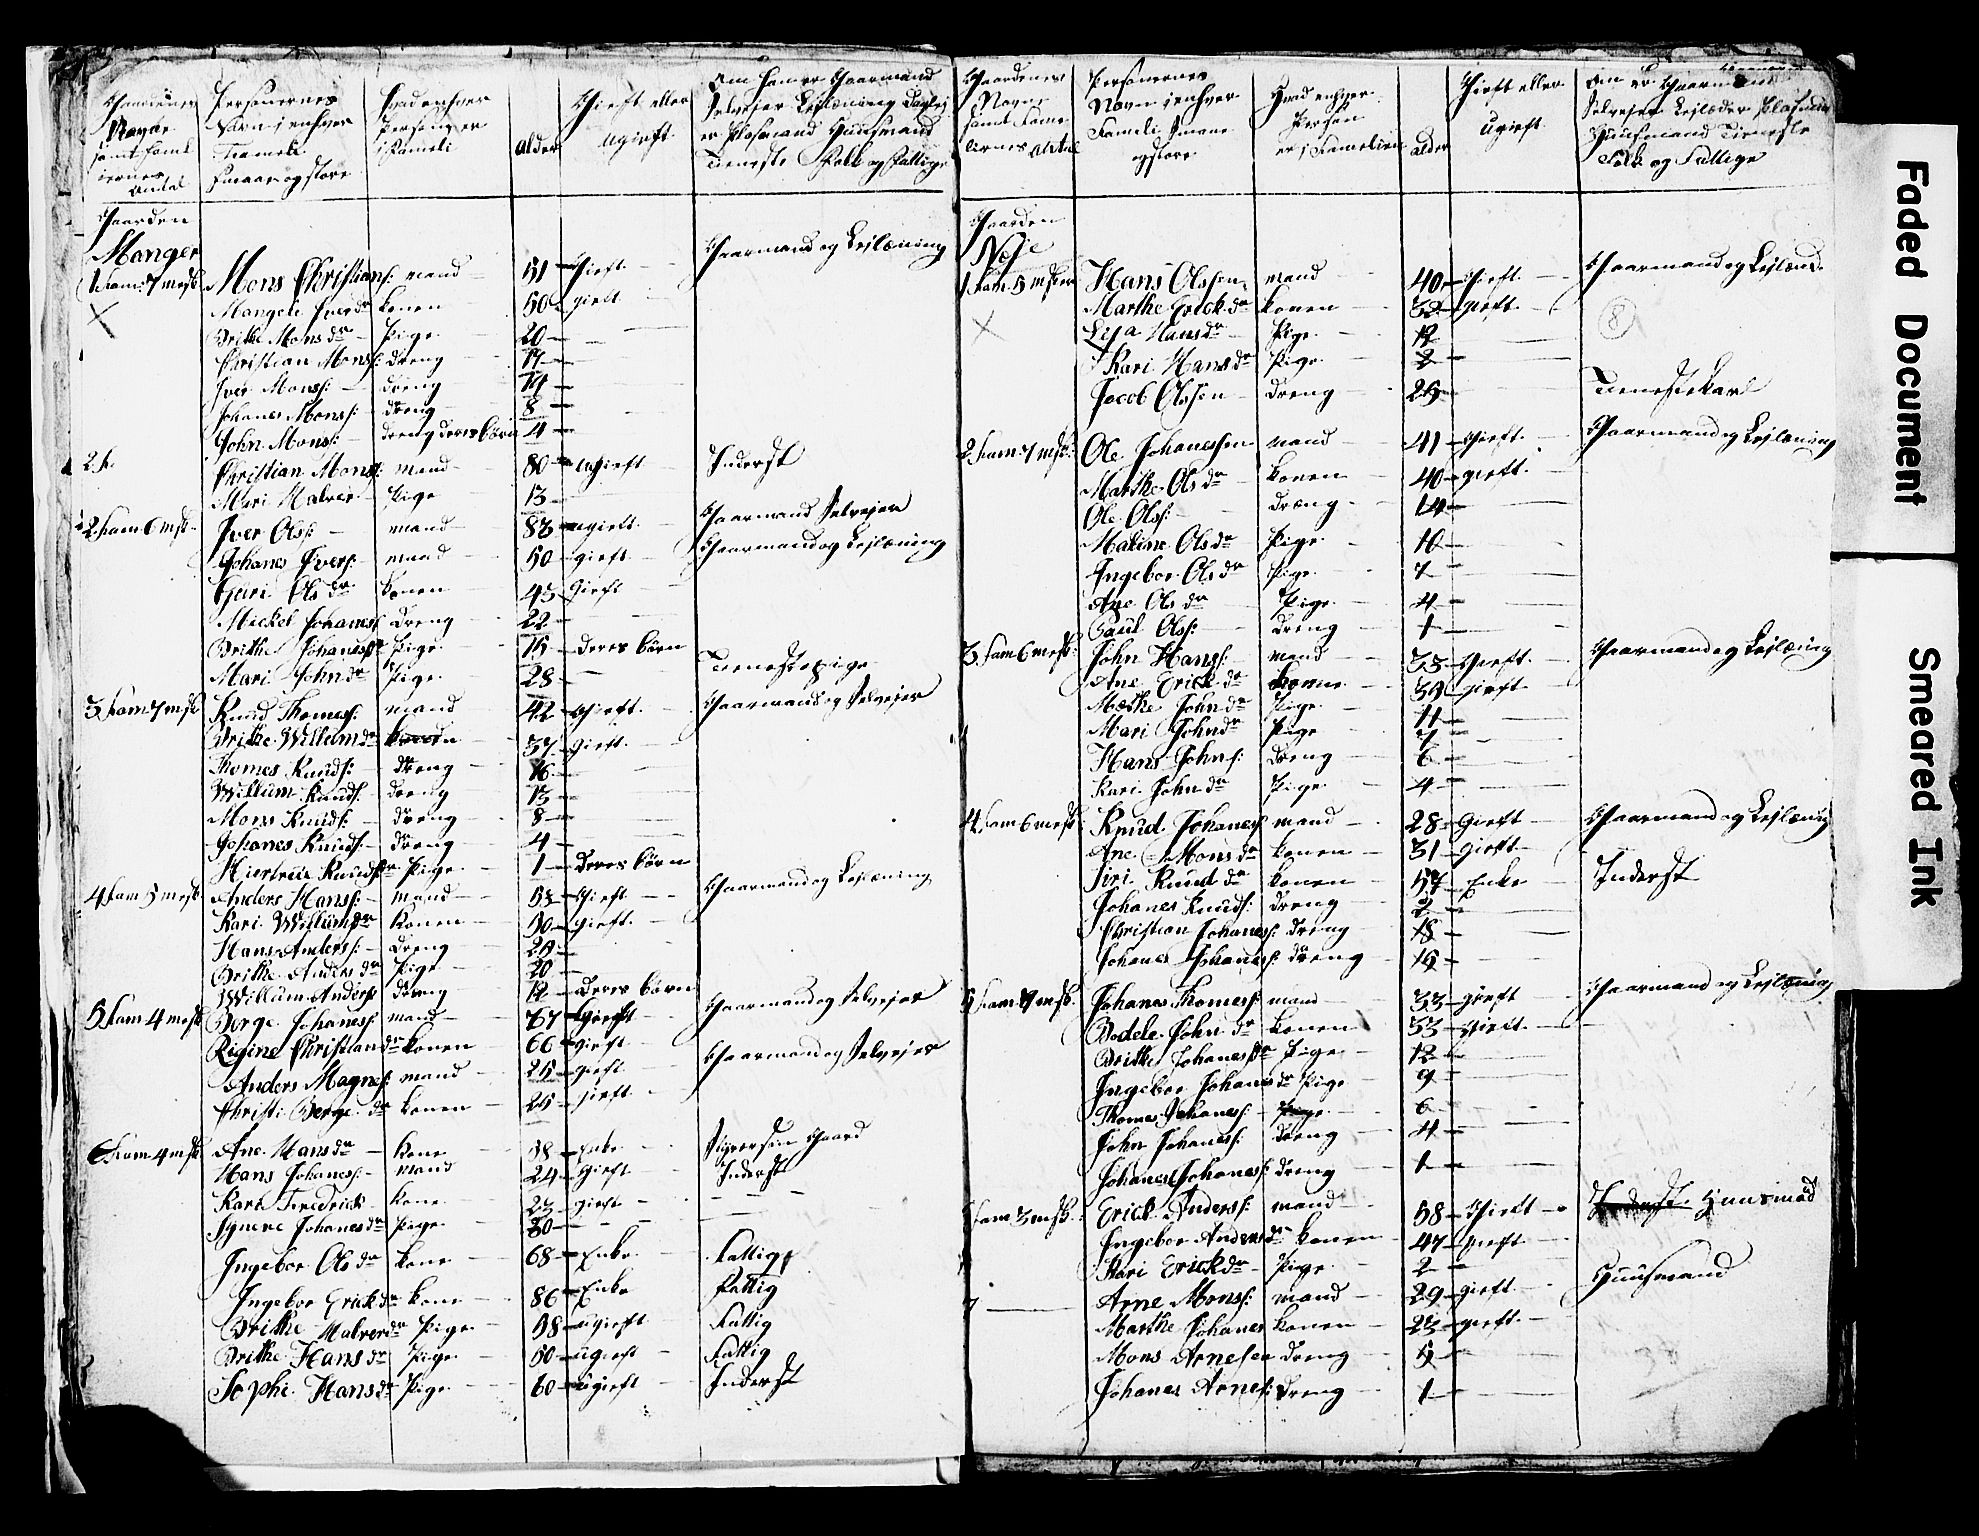 Gaardenes
Navne
samt Fami
liernes
Antal
Personernes
Navn i enhver
Fameli
Smaae og store
Hvad enhver
Person er
i Fameli
alder
Gieft eller
ugieft
Om han er Gaarmand
Selvejer Lejlæning
er Plasmand Huusmand
Tieneste Folk og Fattige
Gaarden
Manger
1 fam: 7 mesk Mons Christians: mand 51 Gieft Gaarmand og Lejlæning
Mangele Iversdr konen 50 gieft
Brithe Monsdr Pige 20
Christian Monss: dreng 17
Iver Monss: dreng 14
Johanes Monss: dreng 8
John Mons: dreng deres börn 4
2. f. Christian Monss: mand 80 ugieft Inderst
Mari Halver Pige 13
2 fam 6 mesk Iver Olss: mand 83 ugieft Gaarmand Selvejer
Johanes Ivers: mand 50 gieft Gaarmand og Lejlæning
Guri Olsdr konen 43 Gieft
Mickel Johaness: dreng 22
Brithe Johanesdr Pige 15 Deres börn
Mari Johndr Pige 28 Tienestepige
3 fam 7 mesk Knud Thomess: mand 42 Gieft Gaarmand og Selvejer
Brithe Willumdr konen 37 gieft
Thomes Knuds: dreng 16
Willum Knuds: dreng 13
Mons Knuds: dreng 8
Johanes Knuds: dreng 4
Knudsdr Pige 1 Deres börn
4 fam 5 mesk Anders Hanss: mand 53 Gieft Gaarmand og Lejlæning
Kari Willumdr konen 50 gieft
Hans Anderss: dreng 25
Brithe Andersdr Pige 20
Willum Anders: dreng 12 Deres börn
5 fam 4 mesk Börge Johaness: mand 67 Gieft Gaarmand og Selvejer
Regine Christiandr konen 66 gieft
Anders Magnes: mand 25 gieft Gaarmand og Selvejer
Christi: Börge dr konen 25 gieft
6 fam 4 mesk Ane Hansdr kone 58 Enke Gaard
Hans Johaness: mand 24 gieft Inderst
Kari Fredrick kone 23 gieft
Johanesdr Pige 30
Ingebor Olsdr kone 68 Enke Fattig
Ingebor Erickdr kone 86 Enke Fattig
Brithe Halverdr Pige 58 ugieft Fattig
Brithe Hansdr Pige 50 ugieft Fattig
Sophi Hansdr Pige 60 ugieft Inderst
Gaardenes
Navne
samt Fame
liernes Antal
Personernes
Navn i enhver
Fameli Smaae
og store
Hvad enhver
Person
er i Familien
alder
Gieft eller
ugieft
Om er Gaarmand
Selvejer Lejlæder Plasmand
Huusmand Tieneste
Folk og Fattige
Gaarden
1 fam 5 mesker Hans Olssen mand 40 Gieft Gaarmand og Lejlænd
Marthe Erickdr konen 32 gieft
8
Lisa Hansdr Pige 12
Kari Hansdr Pige 2
Jacob Olssen dreng 25 Tienestekarl
2 fam 7 mesk: Ole Johanessen mand 41 Gieft Gaarmand og Lejlæning
Marthe Olsdr konen 40 gieft
Ole Olss: dreng 14
Maline Olsdr Pige 10
Ingebor Olsdr Pige 7
Ane Olsdr Pige 4
Paul Olss: dreng 1
3 fam 6 mesk: John Hanss: mand 35 Gieft Gaarmand og Lejlæning
Ane Erickdr konne 39 gieft
Marthe Johndr Pige 11
Mari Johndr Pige 7
Hans Johns: dreng 6
Kari Johndr Pige 4
4 fam 6 mesk: Knud Johaness mand 28 Gieft Gaarmand og Lejlæning
Ane Monsdr konen 31 gieft
Siri Knuddr konen 57 Enke Inderst
Johanes Knuds: dreng 2
Christian Johaness: dreng 18
Johanes Johaness: dreng 16
5 fam 7 mesk: Johanes Thomess: mand 33 gieft Gaarmand og Lejlæning
Bodele Johndr konen 33 gieft
Brithe Johanesdr Pige 12
Ingebor Johanesdr Pige 9
Thomes Johaness: Pige 6
John Johaness: dreng 4
Johanes Johaness: dreng 1
fam 3 mesk: Erick Anderss: mand 58 Gieft Inderst Huusmad
Ingebor Andersdr konen 47 gieft
Kari Erickdr Pige 2
7 Arne Monss: mand 29 gieft Huusmand
Marthe Johanes konen 23 gieft
Mons Arnesen dreng 5
Johanes Arnes: dreng 1
Faded Document
Smeared Ink